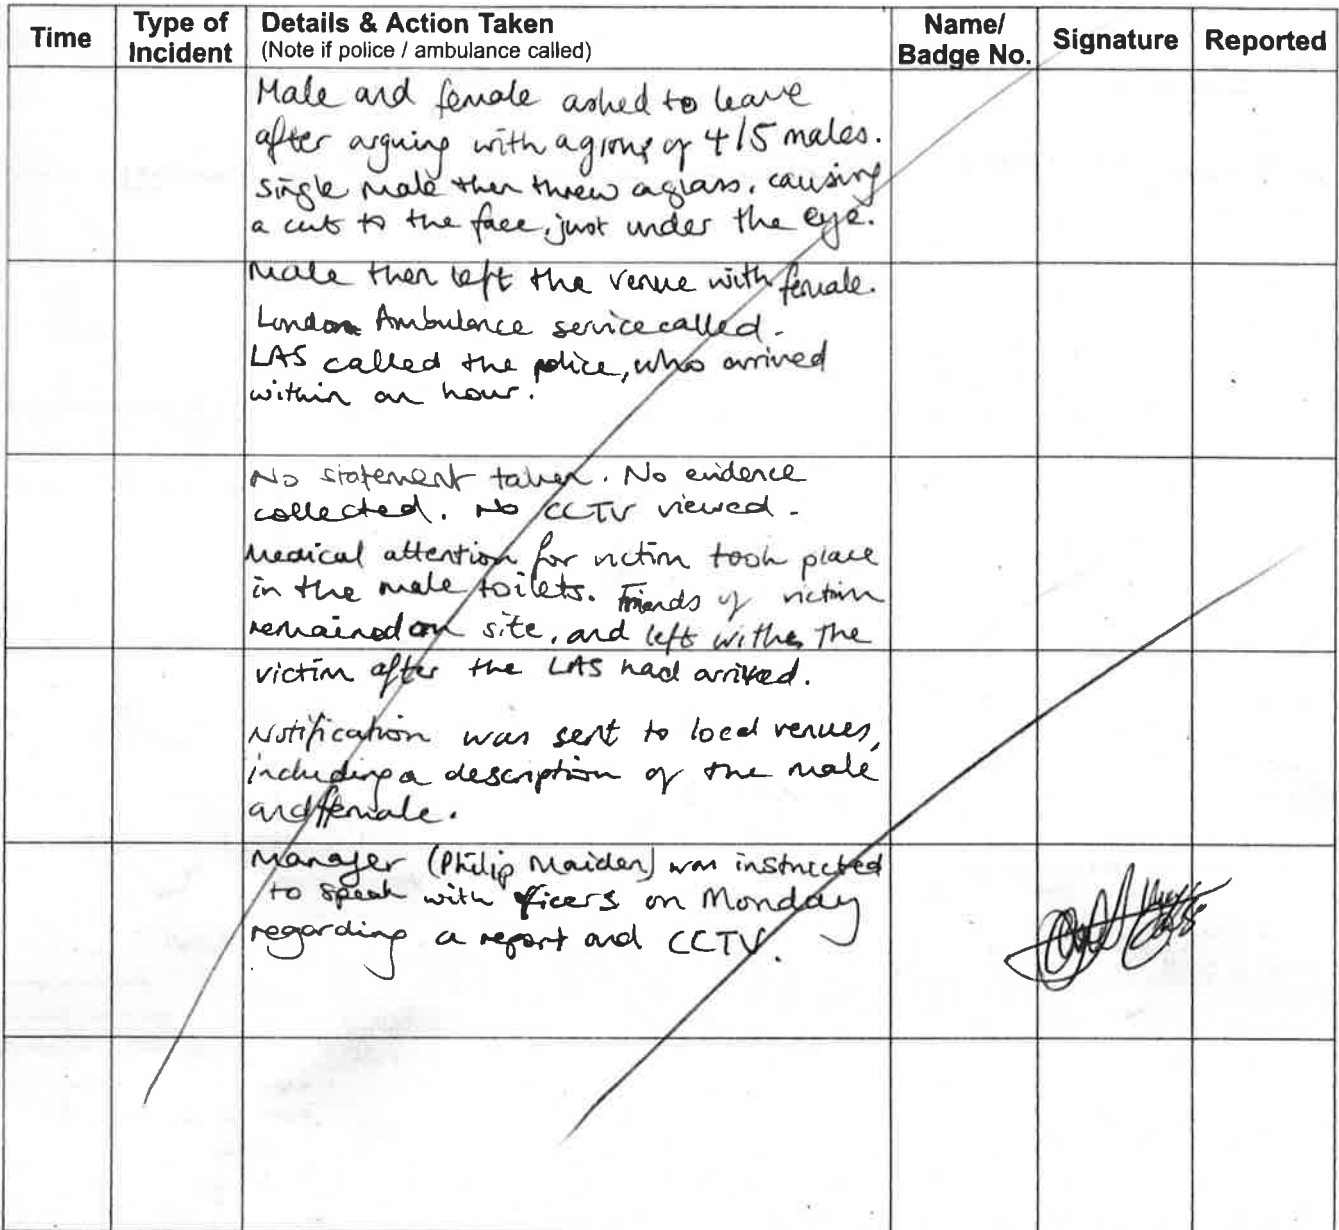 Time Type of Incident Details & Action Taken (Note if police / ambulance called) Name/ Badge No. Signature Reported
Male and female asked to leave
after arguing with a group of 4/5 males.
single male then threw a glass, causing
a cut to the face, just under the eye.
Male then left the venue with female.
London Ambulance service called.
LAS called the police, who arrived
within an hour.
No statement taken. No evidence
collected. No CCTV viewed.
Medical attention for victim took place
in the male toilets. Friends of victim
remained on site, and left with the
victim after the LAS had arrived.
Notification was sent to local venues,
including a description of the male
and female.
Manager (Philip Maiden) was instructed
to speak with ficers on Monday
regarding a report and CCTV.